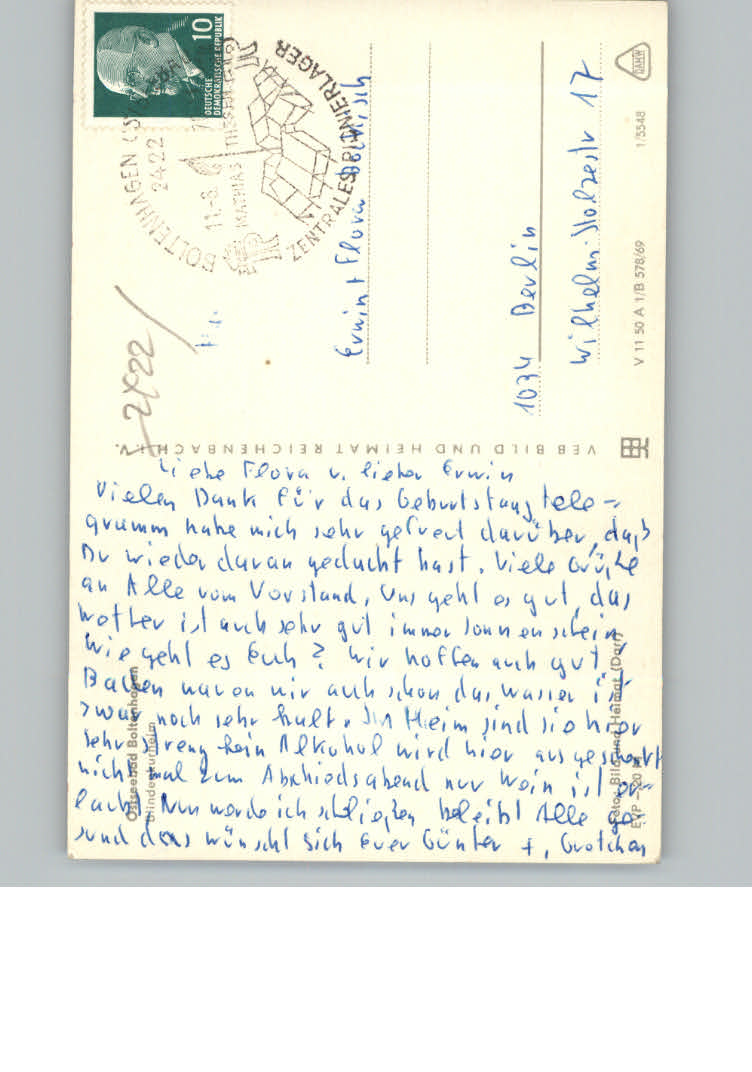 10
DEUTSCHE
DEMOKRATISCHE REPUBLIK
BOLTENHAGEN
2422
11.-6.
MATHIAS THESEN
ZENTRALES PIONIERLAGER
2422
Erwin + Flora
1034 Berlin
Wilhelm-Stolzestr 17
DAMW
1/5548
V 11 50 A 1/B 578/69
VEB BILD UND HEIMAT REICHENBACH I. V.
Liebe Flora u. lieber Erwin
Vielen Dank für das Geburtstagstele-
gramm habe mich sehr gefreut darüber, daß
Du wieder daran gedacht hast. Viele Grüße
an Alle vom Vorstand, Uns geht es gut, das
Wetter ist auch sehr gut immer Sonnenschein
Wie geht es Euch? Wir hoffen auch gut!
Baden waren wir auch schon das Wasser ist
zwar noch sehr kalt. Im Heim sind sie hier
sehr streng kein Alkohol wird hier ausgeschenkt
nicht mal zum Abschiedsabend nur Wein ist er-
laubt Nun werde ich schließen bleibt Alle ge-
sund das wünscht sich Euer Günter +, Gretchen
Ostseebad Boltenhagen
Blindenkurheim
Foto: Bild und Heimat (Darr)
EVP -,20 M